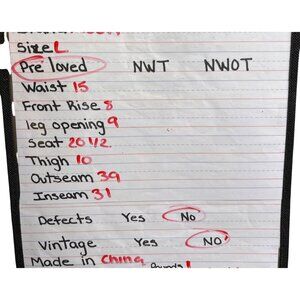 Size L
Pre loved NWT NWOT
Waist 15
Front Rise 8
leg opening 9
Seat 20 1/2
Thigh 10
Outseam 39
Inseam 31
Defects Yes No
Vintage Yes NO
Made in China
Pounds 1